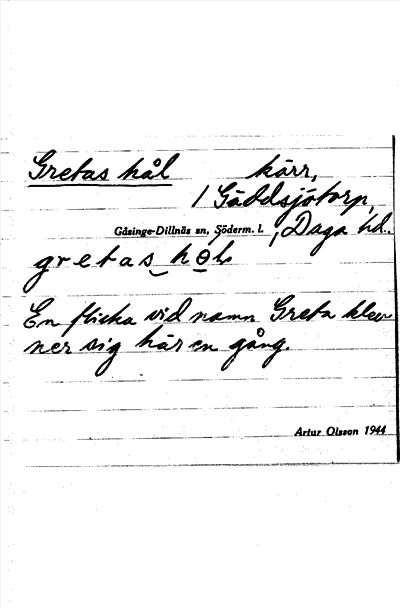 Gretas hål kärr,
/ Gäddsjötorp,
Gåsinge-Dillnäs sn, Söderm. l. , Daga hd.
gretas hol
En flicka vid namn Greta klev
ner sig här en gång.
Artur Olsson 1944